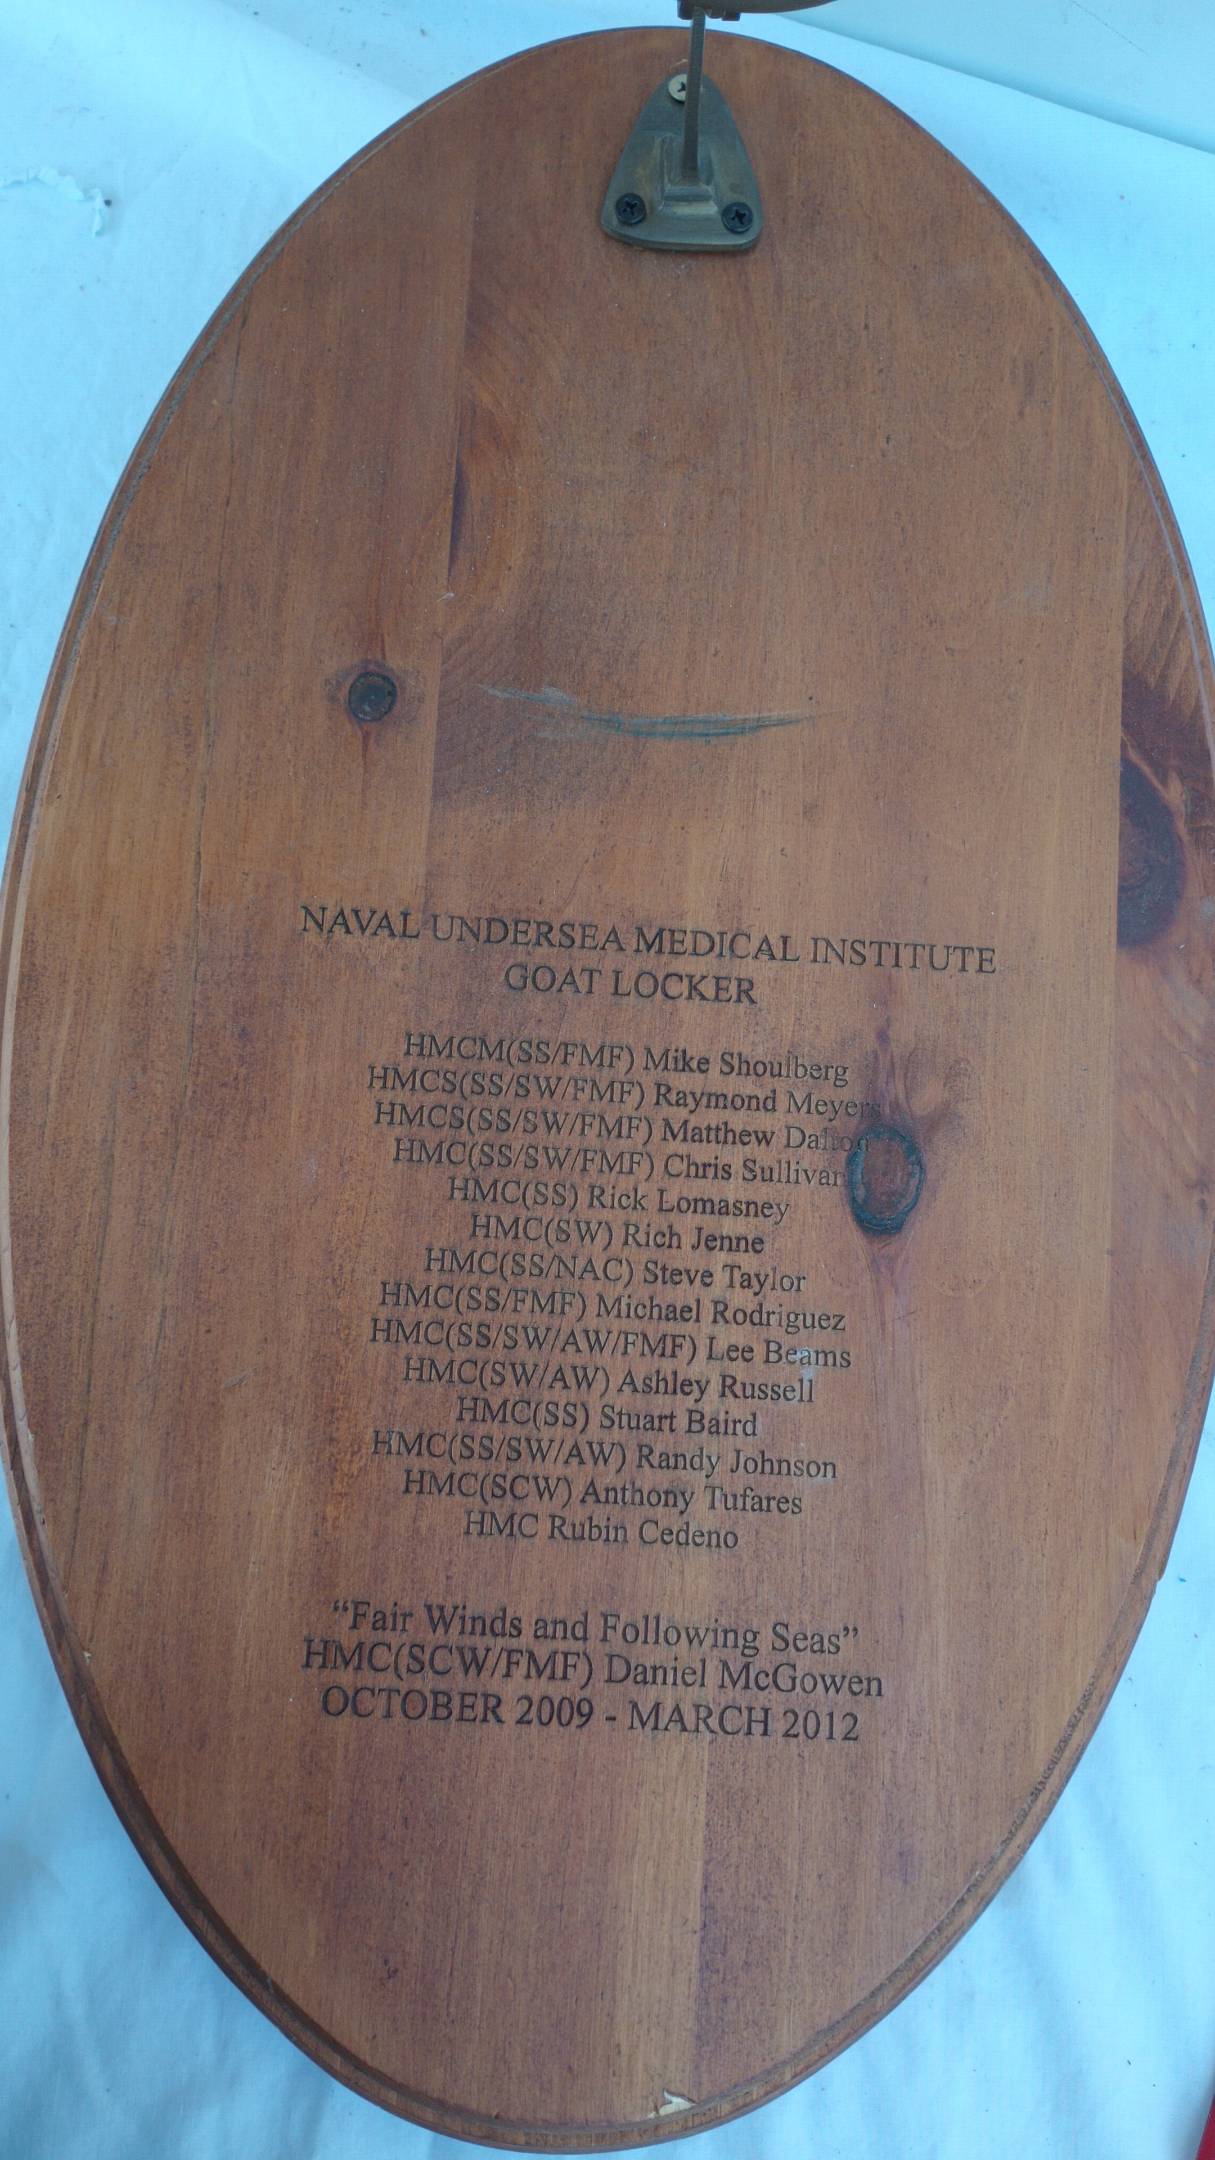 NAVAL UNDERSEA MEDICAL INSTITUTE
GOAT LOCKER
HMCM(SS/FMF) Mike Shoulberg
HMCS(SS/SW/FMF) Raymond Meyers
HMCS(SS/SW/FMF) Matthew Dalton
HMC(SS/SW/FMF) Chris Sullivan
HMC(SS) Rick Lomasney
HMC(SW) Rich Jenne
HMC(SS/NAC) Steve Taylor
HMC(SS/FMF) Michael Rodriguez
HMC(SS/SW/AW/FMF) Lee Beams
HMC(SW/AW) Ashley Russell
HMC(SS) Stuart Baird
HMC(SS/SW/AW) Randy Johnson
HMC(SCW) Anthony Tufares
HMC Rubin Cedeno
“Fair Winds and Following Seas”
HMC(SCW/FMF) Daniel McGowen
OCTOBER 2009 - MARCH 2012